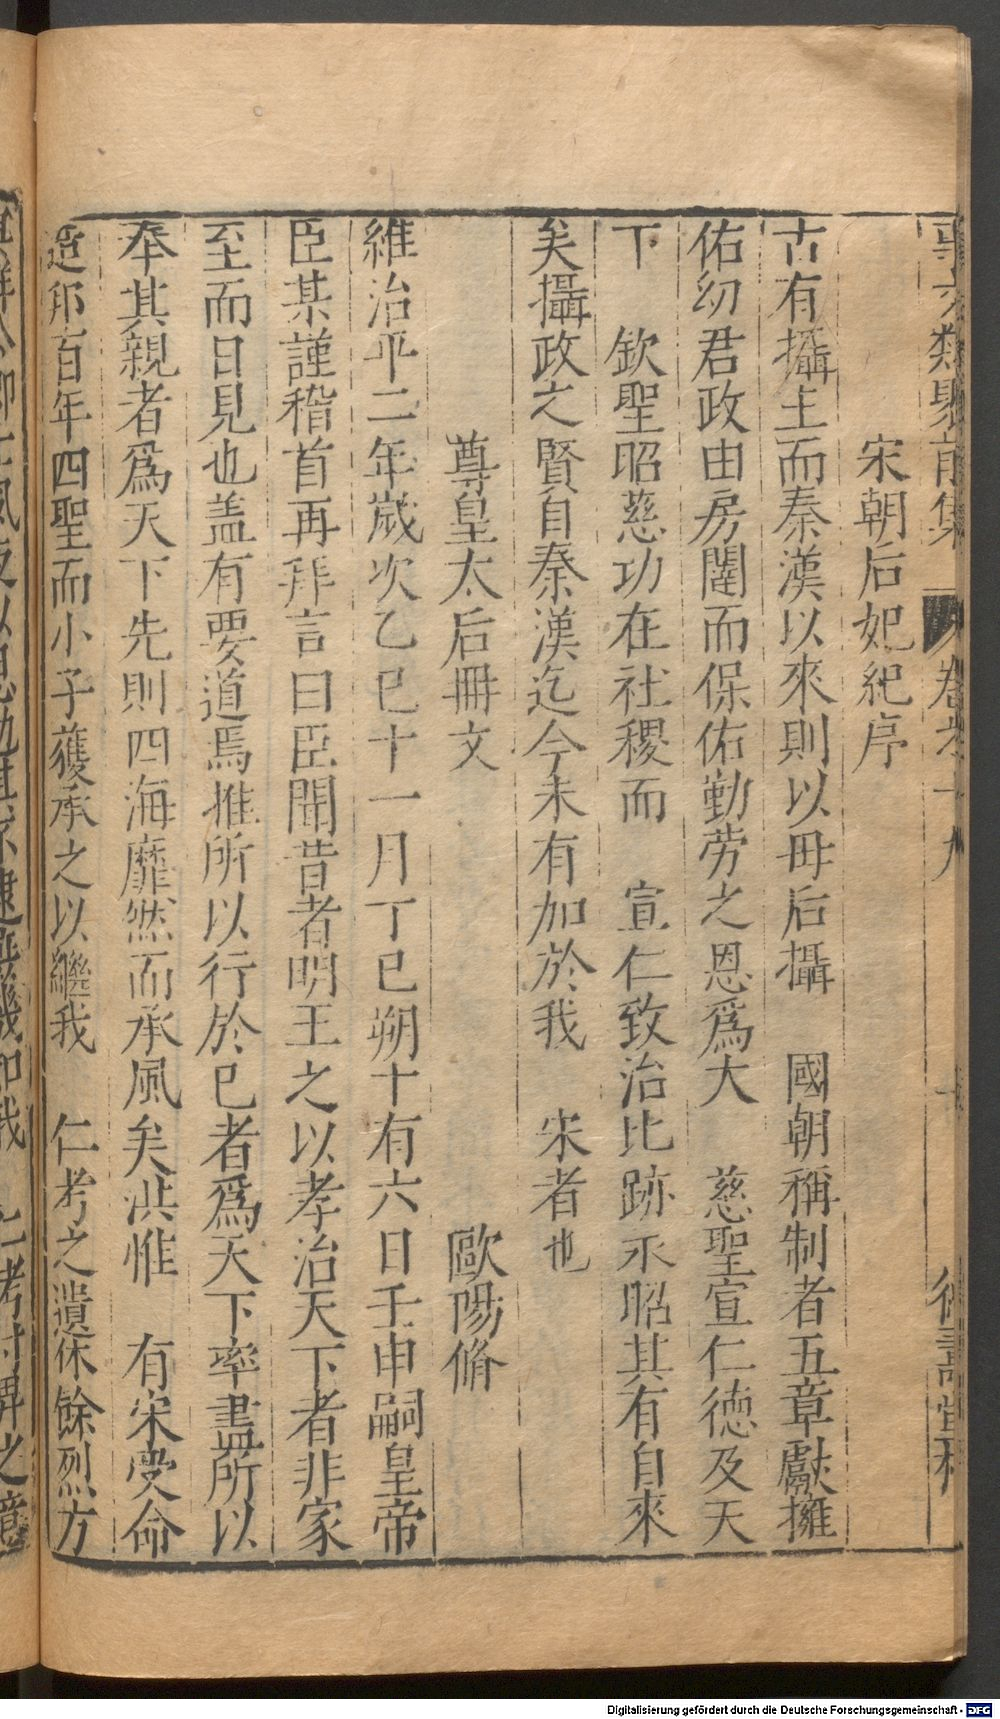 事文類聚前集 卷十九
宋朝后妃紀序
古有攝主而秦漢以來則以毋后攝 國朝稱制者五章獻擁
佑幼君政由房闥而保佑勤勞之恩爲大 慈聖宣仁德及天
下 欽聖昭慈功在社稷而 宣仁致治比跡永昭其有自來
矣攝政之賢自秦漢迄今未有加於我 宋者也
尊皇太后冊文 歐陽脩
維治平二年歲次乙巳十一月丁巳朔十有六日壬申嗣皇帝
臣某謹稽首再拜言曰臣聞昔者明王之以孝治天下者非家
至而日見也盖有要道焉推所以行於已者爲天下率盡所以
奉其親者爲天下先則四海靡然而承風矣洪惟 有宋受命
造邦百年四聖而小子獲承之以繼我 仁考之遺休餘烈方